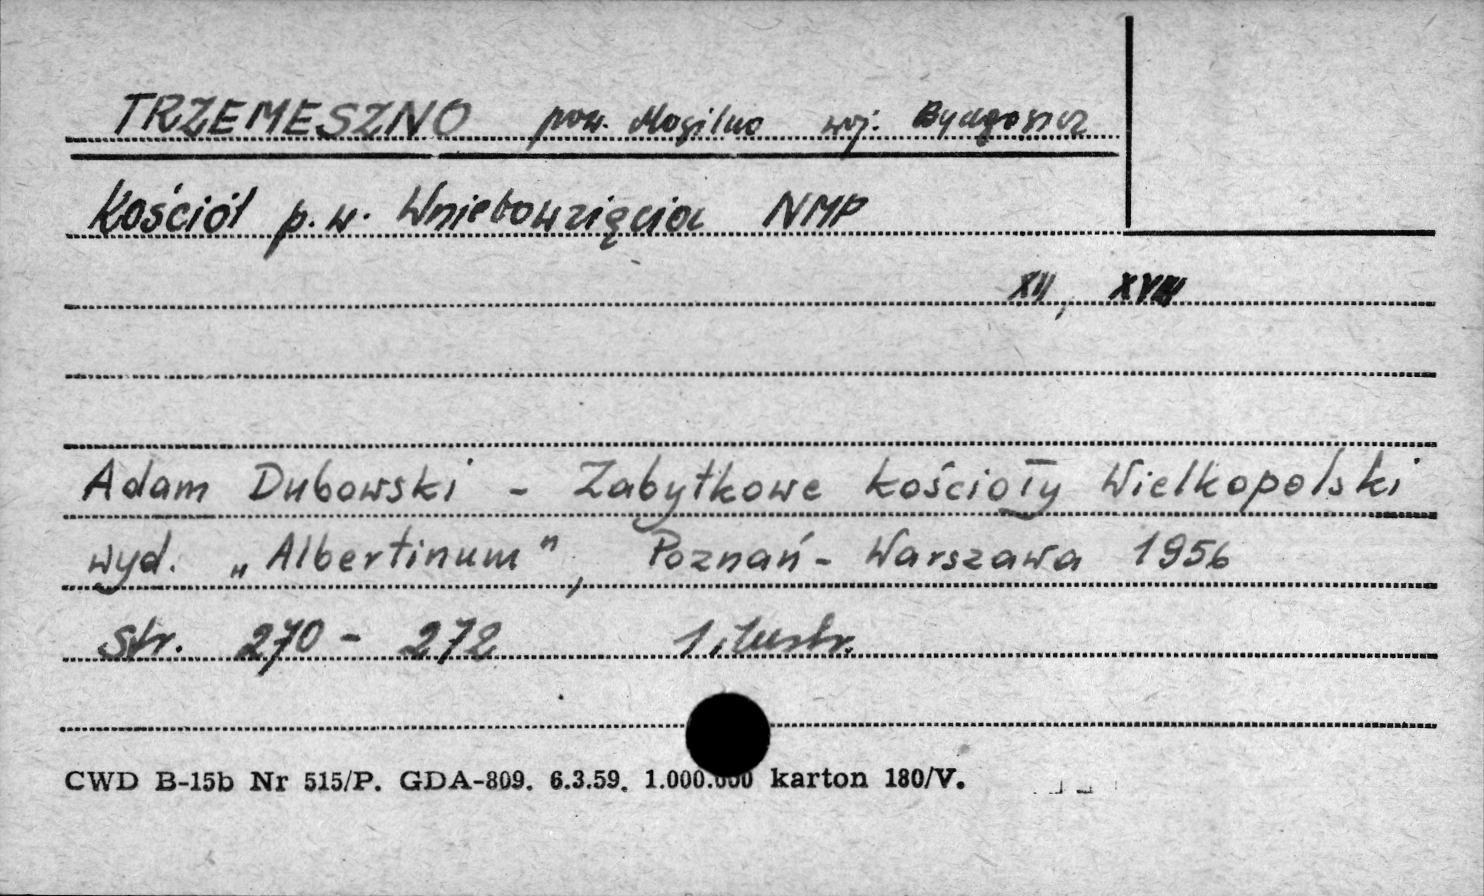 TRZEMESZNO pow. Mogilno woj. Bydgoszcz
Kościół p.w. Wniebowzięcia NMP
XII, XVIII
Adam Dubowski - Zabytkowe kościoły Wielkopolski
wyd. „Albertinum", Poznań - Warszawa 1956
str. 270 - 272 1 ilustr.
CWD B-15b Nr 515/P. GDA-809. 6.3.59. 1.000.000 karton 180/V.